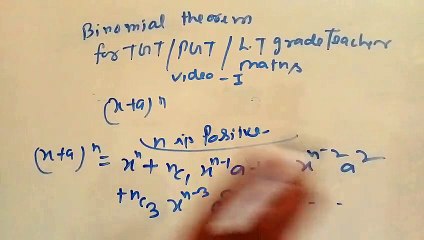 Binomial theorem
for TGT / PGT / LT grade Teacher
video - I maths
(x+a)^n
n is Positive
(x+a)^n = x^n + n_c_1 x^{n-1} a x^{n-2} a^2
+ n_c_3 x^{n-3} - -